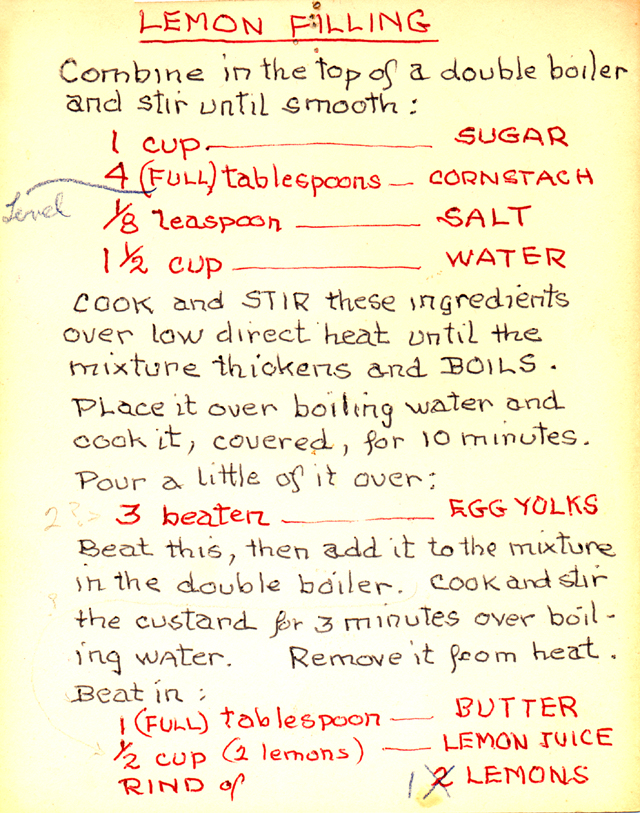 LEMON FILLING
Combine in the top of a double boiler
and stir until smooth:
1 cup SUGAR
4 (FULL) tablespoons CORNSTACH
Level
1/8 teaspoon SALT
1 1/2 cup WATER
COOK and STIR these ingredients
over low direct heat until the
mixture thickens and BOILS.
Place it over boiling water and
cook it, covered, for 10 minutes.
Pour a little of it over:
2?> 3 beaten EGG YOLKS
Beat this, then add it to the mixture
in the double boiler. Cook and stir
the custard for 3 minutes over boil-
ing water. Remove it from heat.
Beat in:
1 (FULL) tablespoon BUTTER
1/2 cup (2 lemons) LEMON JUICE
RIND of 1 2 LEMONS